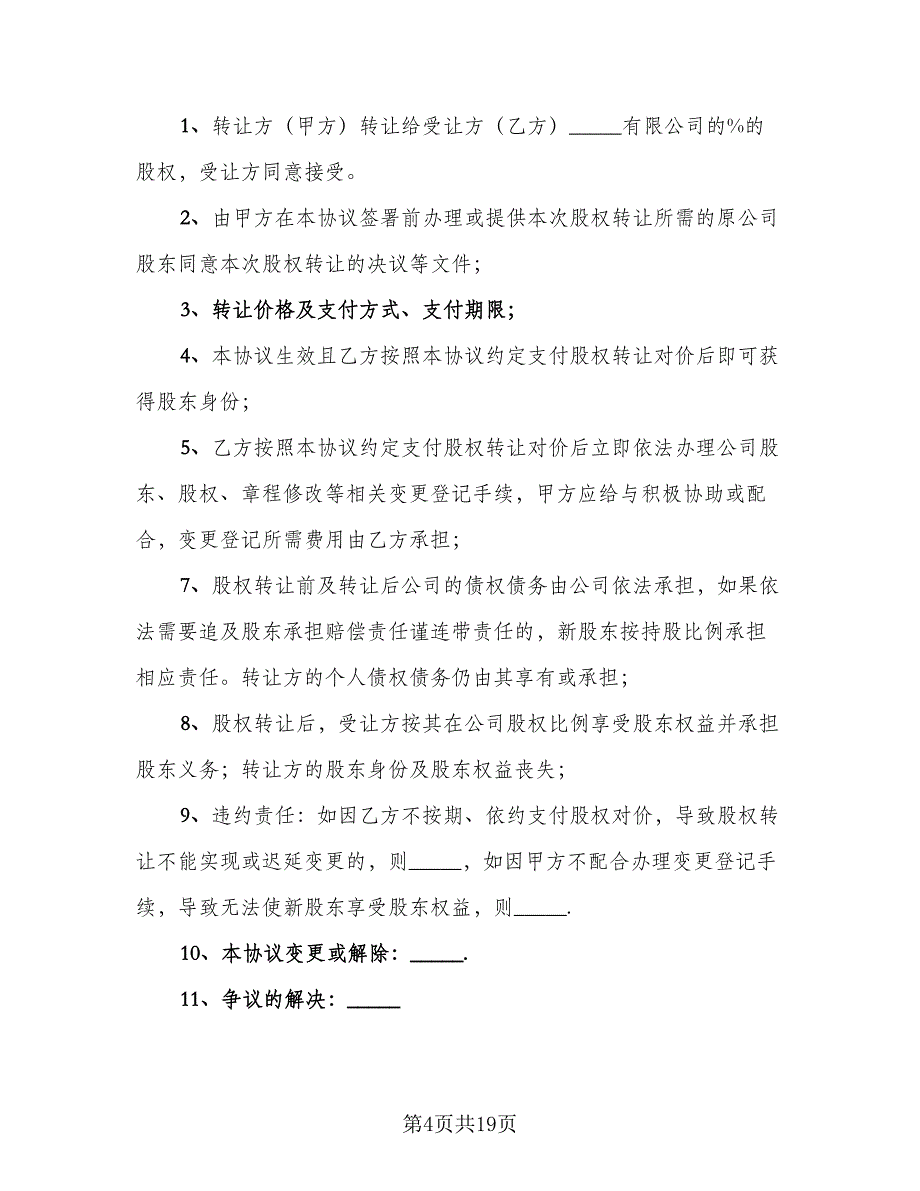 1、转让方（甲方）转让给受让方（乙方）_____有限公司的%的
股权，受让方同意接受。
2、由甲方在本协议签署前办理或提供本次股权转让所需的原公司
股东同意本次股权转让的决议等文件；
3、转让价格及支付方式、支付期限；
4、本协议生效且乙方按照本协议约定支付股权转让对价后即可获
得股东身份；
5、乙方按照本协议约定支付股权转让对价后立即依法办理公司股
东、股权、章程修改等相关变更登记手续，甲方应给与积极协助或配
合，变更登记所需费用由乙方承担；
7、股权转让前及转让后公司的债权债务由公司依法承担，如果依
法需要追及股东承担赔偿责任谨连带责任的，新股东按持股比例承担
相应责任。转让方的个人债权债务仍由其享有或承担；
8、股权转让后，受让方按其在公司股权比例享受股东权益并承担
股东义务；转让方的股东身份及股东权益丧失；
9、违约责任：如因乙方不按期、依约支付股权对价，导致股权转
让不能实现或迟延变更的，则_____，如因甲方不配合办理变更登记手
续，导致无法使新股东享受股东权益，则_____.
10、本协议变更或解除：_____.
11、争议的解决：_____
第4页共19页